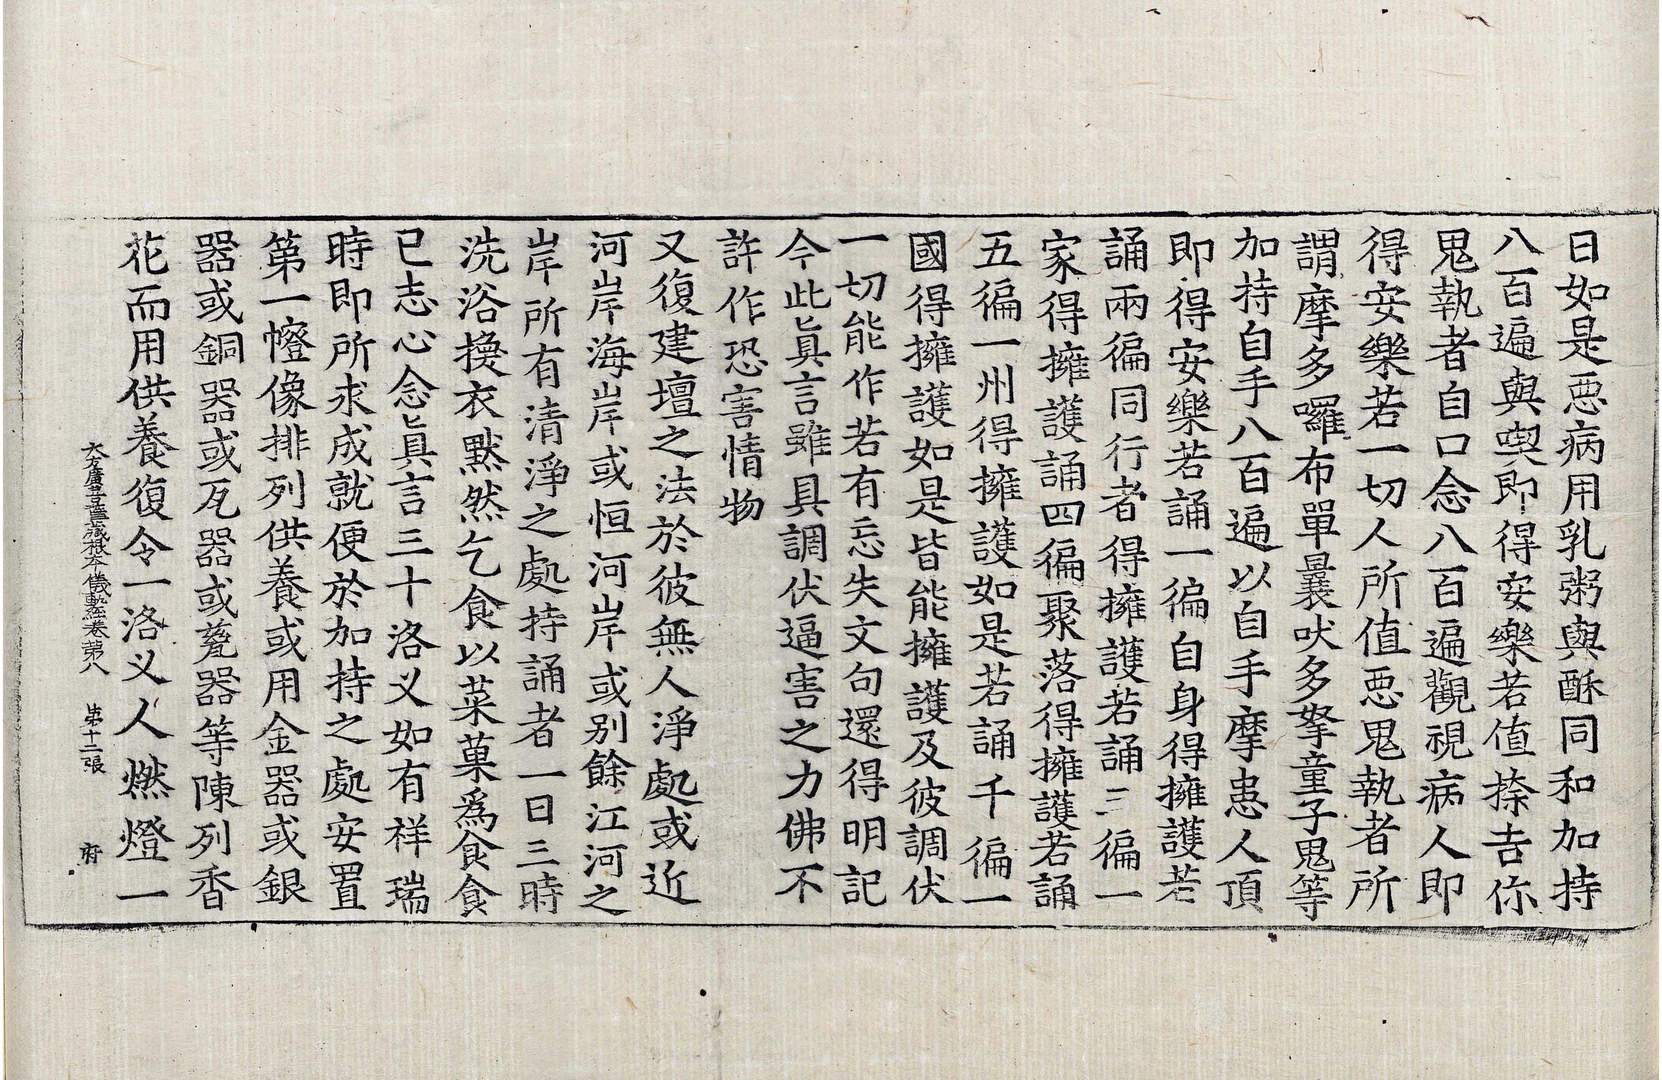 日如是恶病用乳粥與酥同和加持
八百遍與喫即得安樂若值捺吉你
鬼執者自口念八百遍觀視病人即
得安樂若一切人所值恶鬼執者所
謂摩多囉布單曩吠多拏童子鬼等
加持自手八百遍以自手摩患人頂
即得安樂若誦一徧自身得擁護若
誦兩徧同行者得擁護若誦三徧一
家得擁護誦四徧聚落得擁護若誦
五徧一州得擁護如是若誦千徧一
國得擁護如是皆能擁護及彼調伏
一切能作若有忘失文句還得明記
今此眞言雖具調伏逼害之力佛不
許作恐害情物
又復建壇之法於彼無人淨處或近
河岸海岸或恒河岸或别餘江河之
岸所有清淨之處持誦者一日三時
洗浴換衣默然乞食以菜菓爲食食
已志心念眞言三十洛义如有祥瑞
時即所求成就便於加持之處安置
第一㡧像排列供養或用金器或銀
器或銅器或瓦器或甆器等陳列香
花而用供養復令一洛义人燃燈一
大方廣菩薩藏根本儀軌經卷第八 第十二張 府